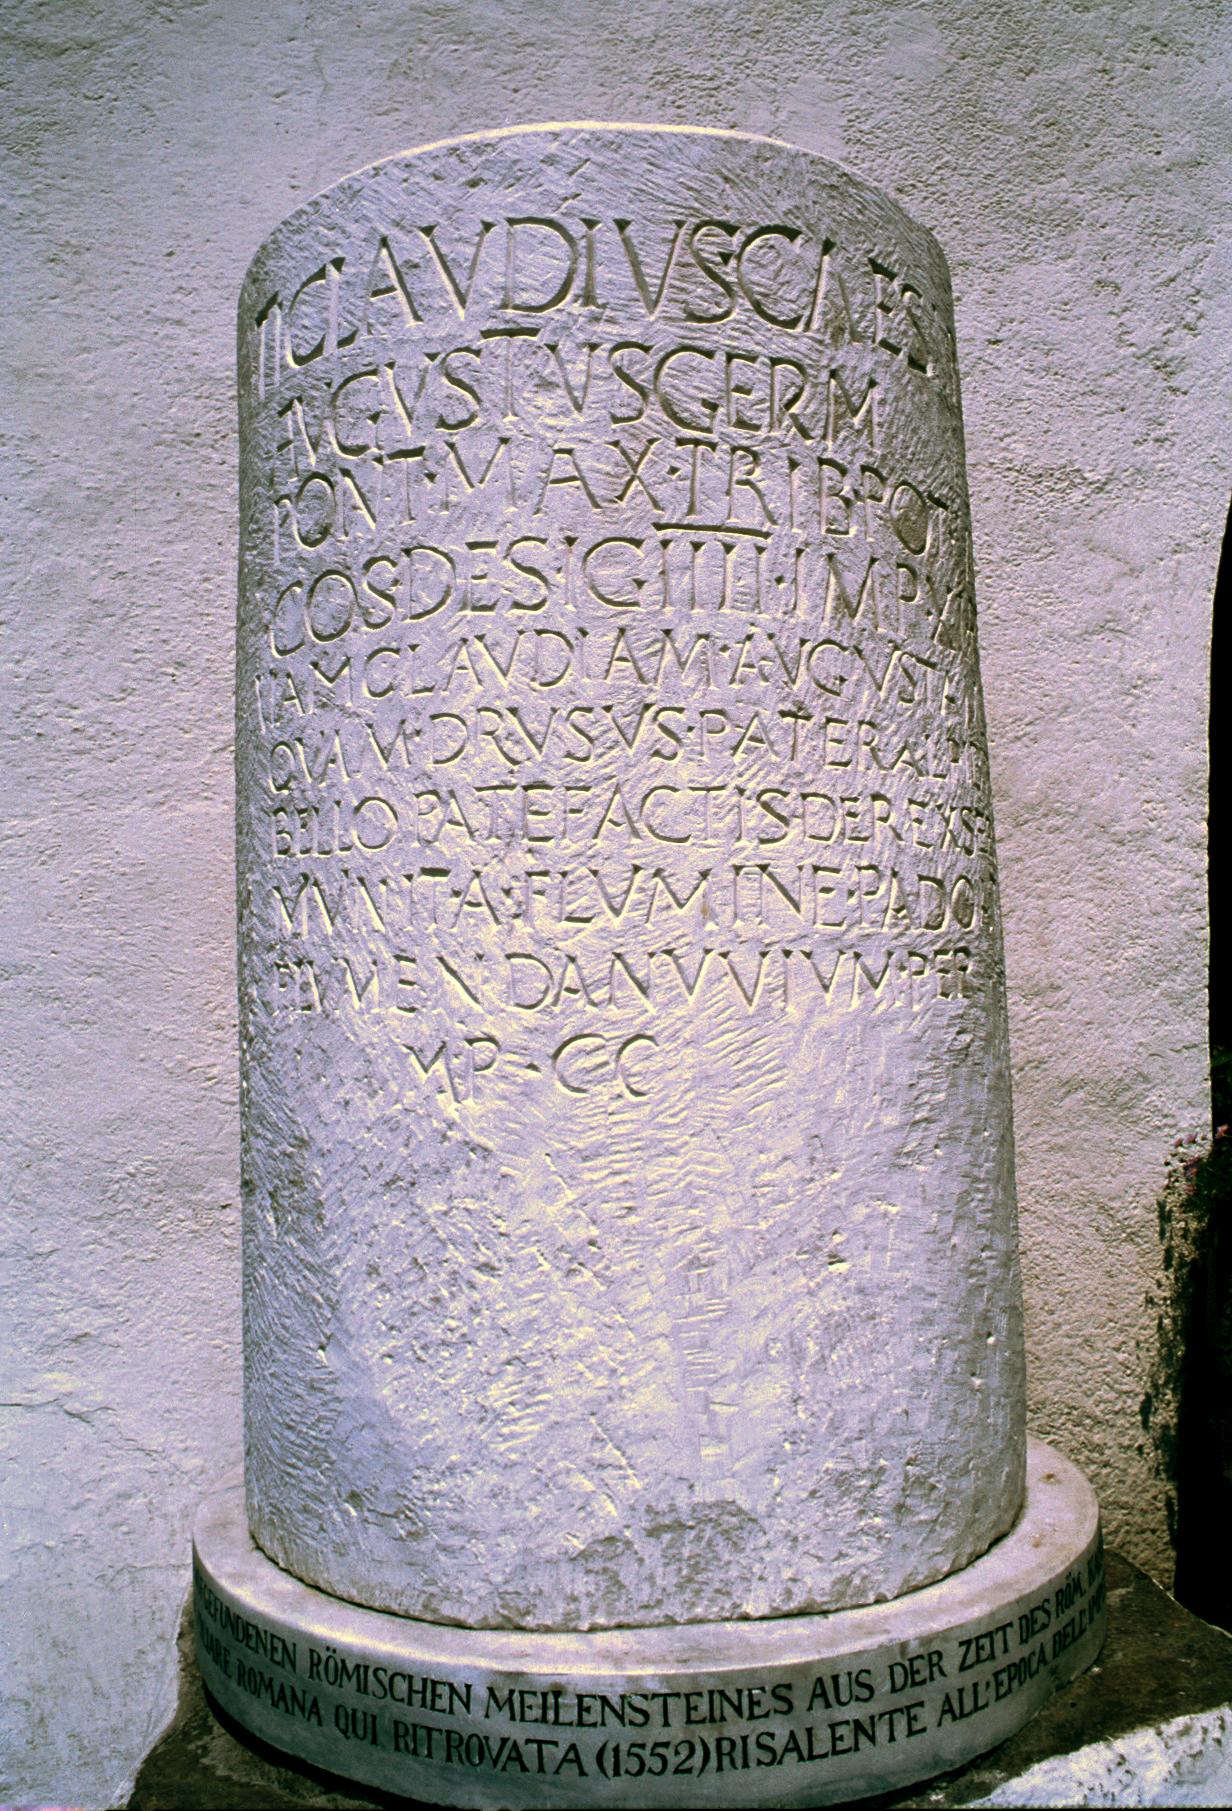 TI CLAVDIVS CAES
AVGVSTVS GERM
PONT·MAX·TRIB POT
COS DESIG·IIII·IMP·XI
VIAM CLAVDIAM·AVGVSTAM
QVAM·DRVSVS·PATER ALPIB
BELLO PATEFACTIS DEREXSE
MVNITA·FLVMINE PADO
FLVMEN DANVVIVM·PER
MP·CC
GEFUNDENEN RÖMISCHEN MEILENSTEINES AUS DER ZEIT DES RÖM.
ROMANA QUI RITROVATA (1552) RISALENTE ALL'EPOCA DELL'